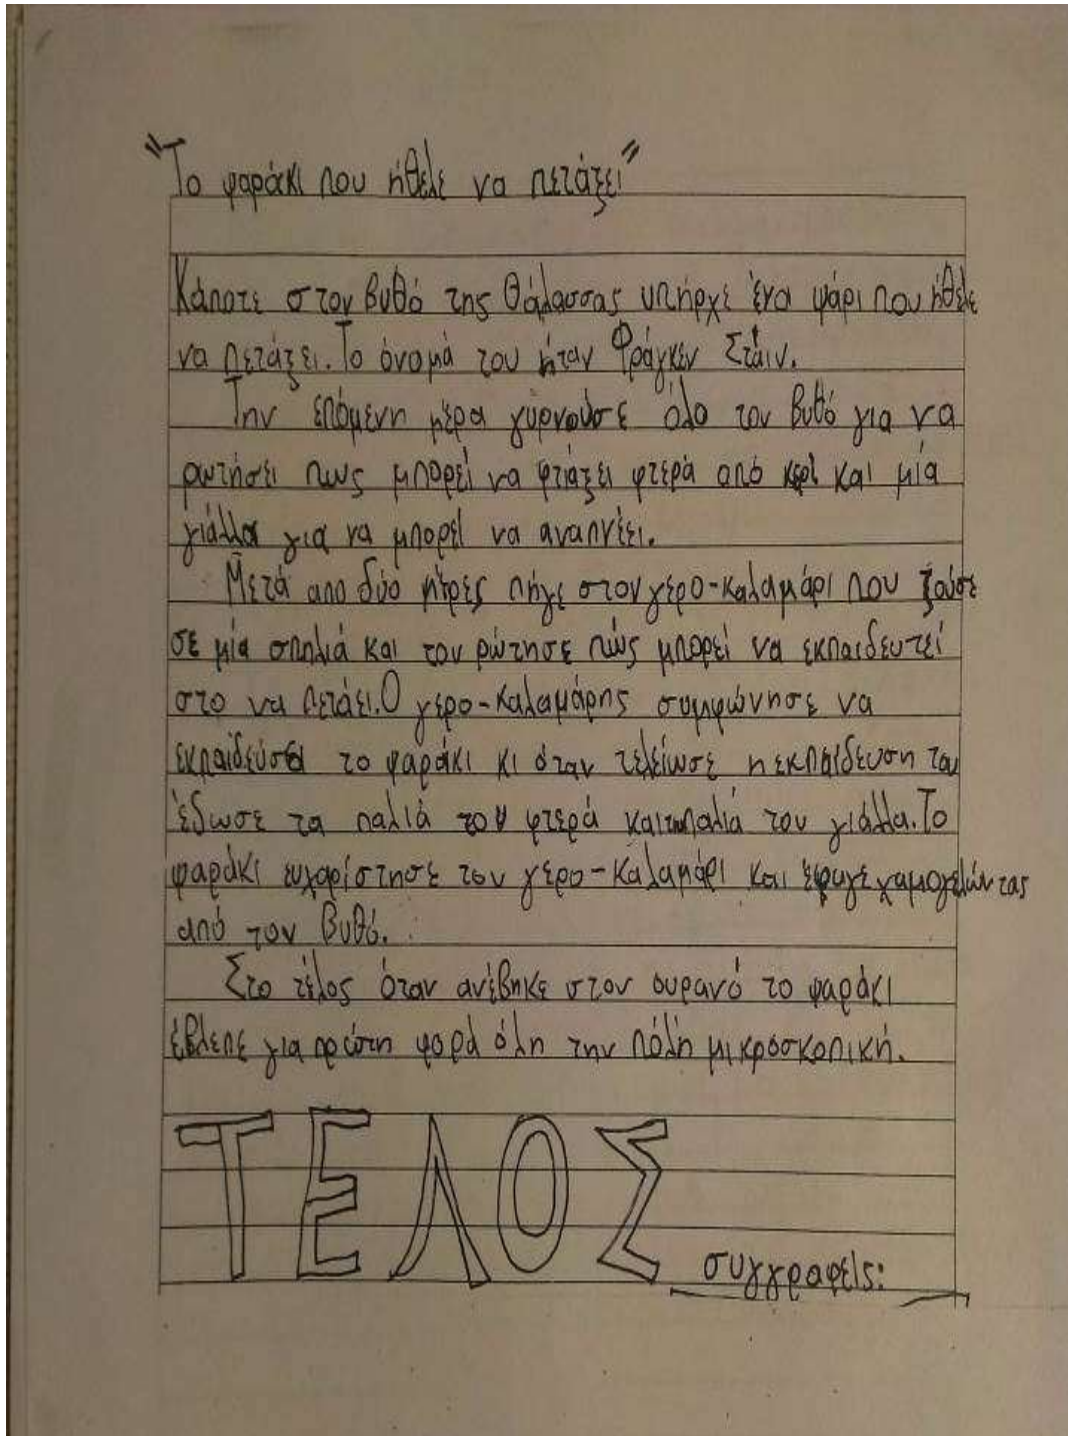 "Το ψαράκι που ήθελε να πετάξει"
Κάποτε στον βυθό της θάλασσας υπήρχε ένα ψάρι που ήθελε
να πετάξει. Το όνομά του ήταν Φράγκεν Στάιν.
Την επόμενη μέρα γύρνούσε όλο τον βυθό για να
ρωτήσει πως μπορεί να φτιάξει φτερά από κερί και μία
γιάλλα για να μπορεί να αναπνέει.
Μετά απο δύο μέρες πήγε στον γέρο-καλαμάρι που ζούσε
σε μία σπηλιά και τον ρώτησε πώς μπορεί να εκπαιδευτεί
στο να πετάει. Ο γέρο-καλαμάρης συμφώνησε να
εκπαίδεύσει το ψαράκι κι όταν τελείωσε η εκπαίδευση του
έδωσε τα παλιά του φτερά και τα παλιά του γιάλλα. Το
ψαράκι ευχαρίστησε τον γέρο-καλαμάρι και έφυγε χαμογελώντας
από τον βυθό.
Στο τέλος όταν ανέβηκε στον ουρανό το ψαράκι
έβλεπε για πρώτη φορά όλη την πόλη μικροσκοπική.
ΤΕΛΟΣ
συγγραφείς: